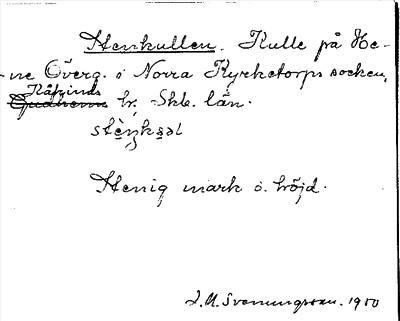 Stenkullen. Kulle på Ste-
ne Överg. i Norra Kyrketorps socken,
Kåkinds
Gudhems hr. Skb. län.
Stenig mark o. höjd.
J. A. Svenungsson. 1950